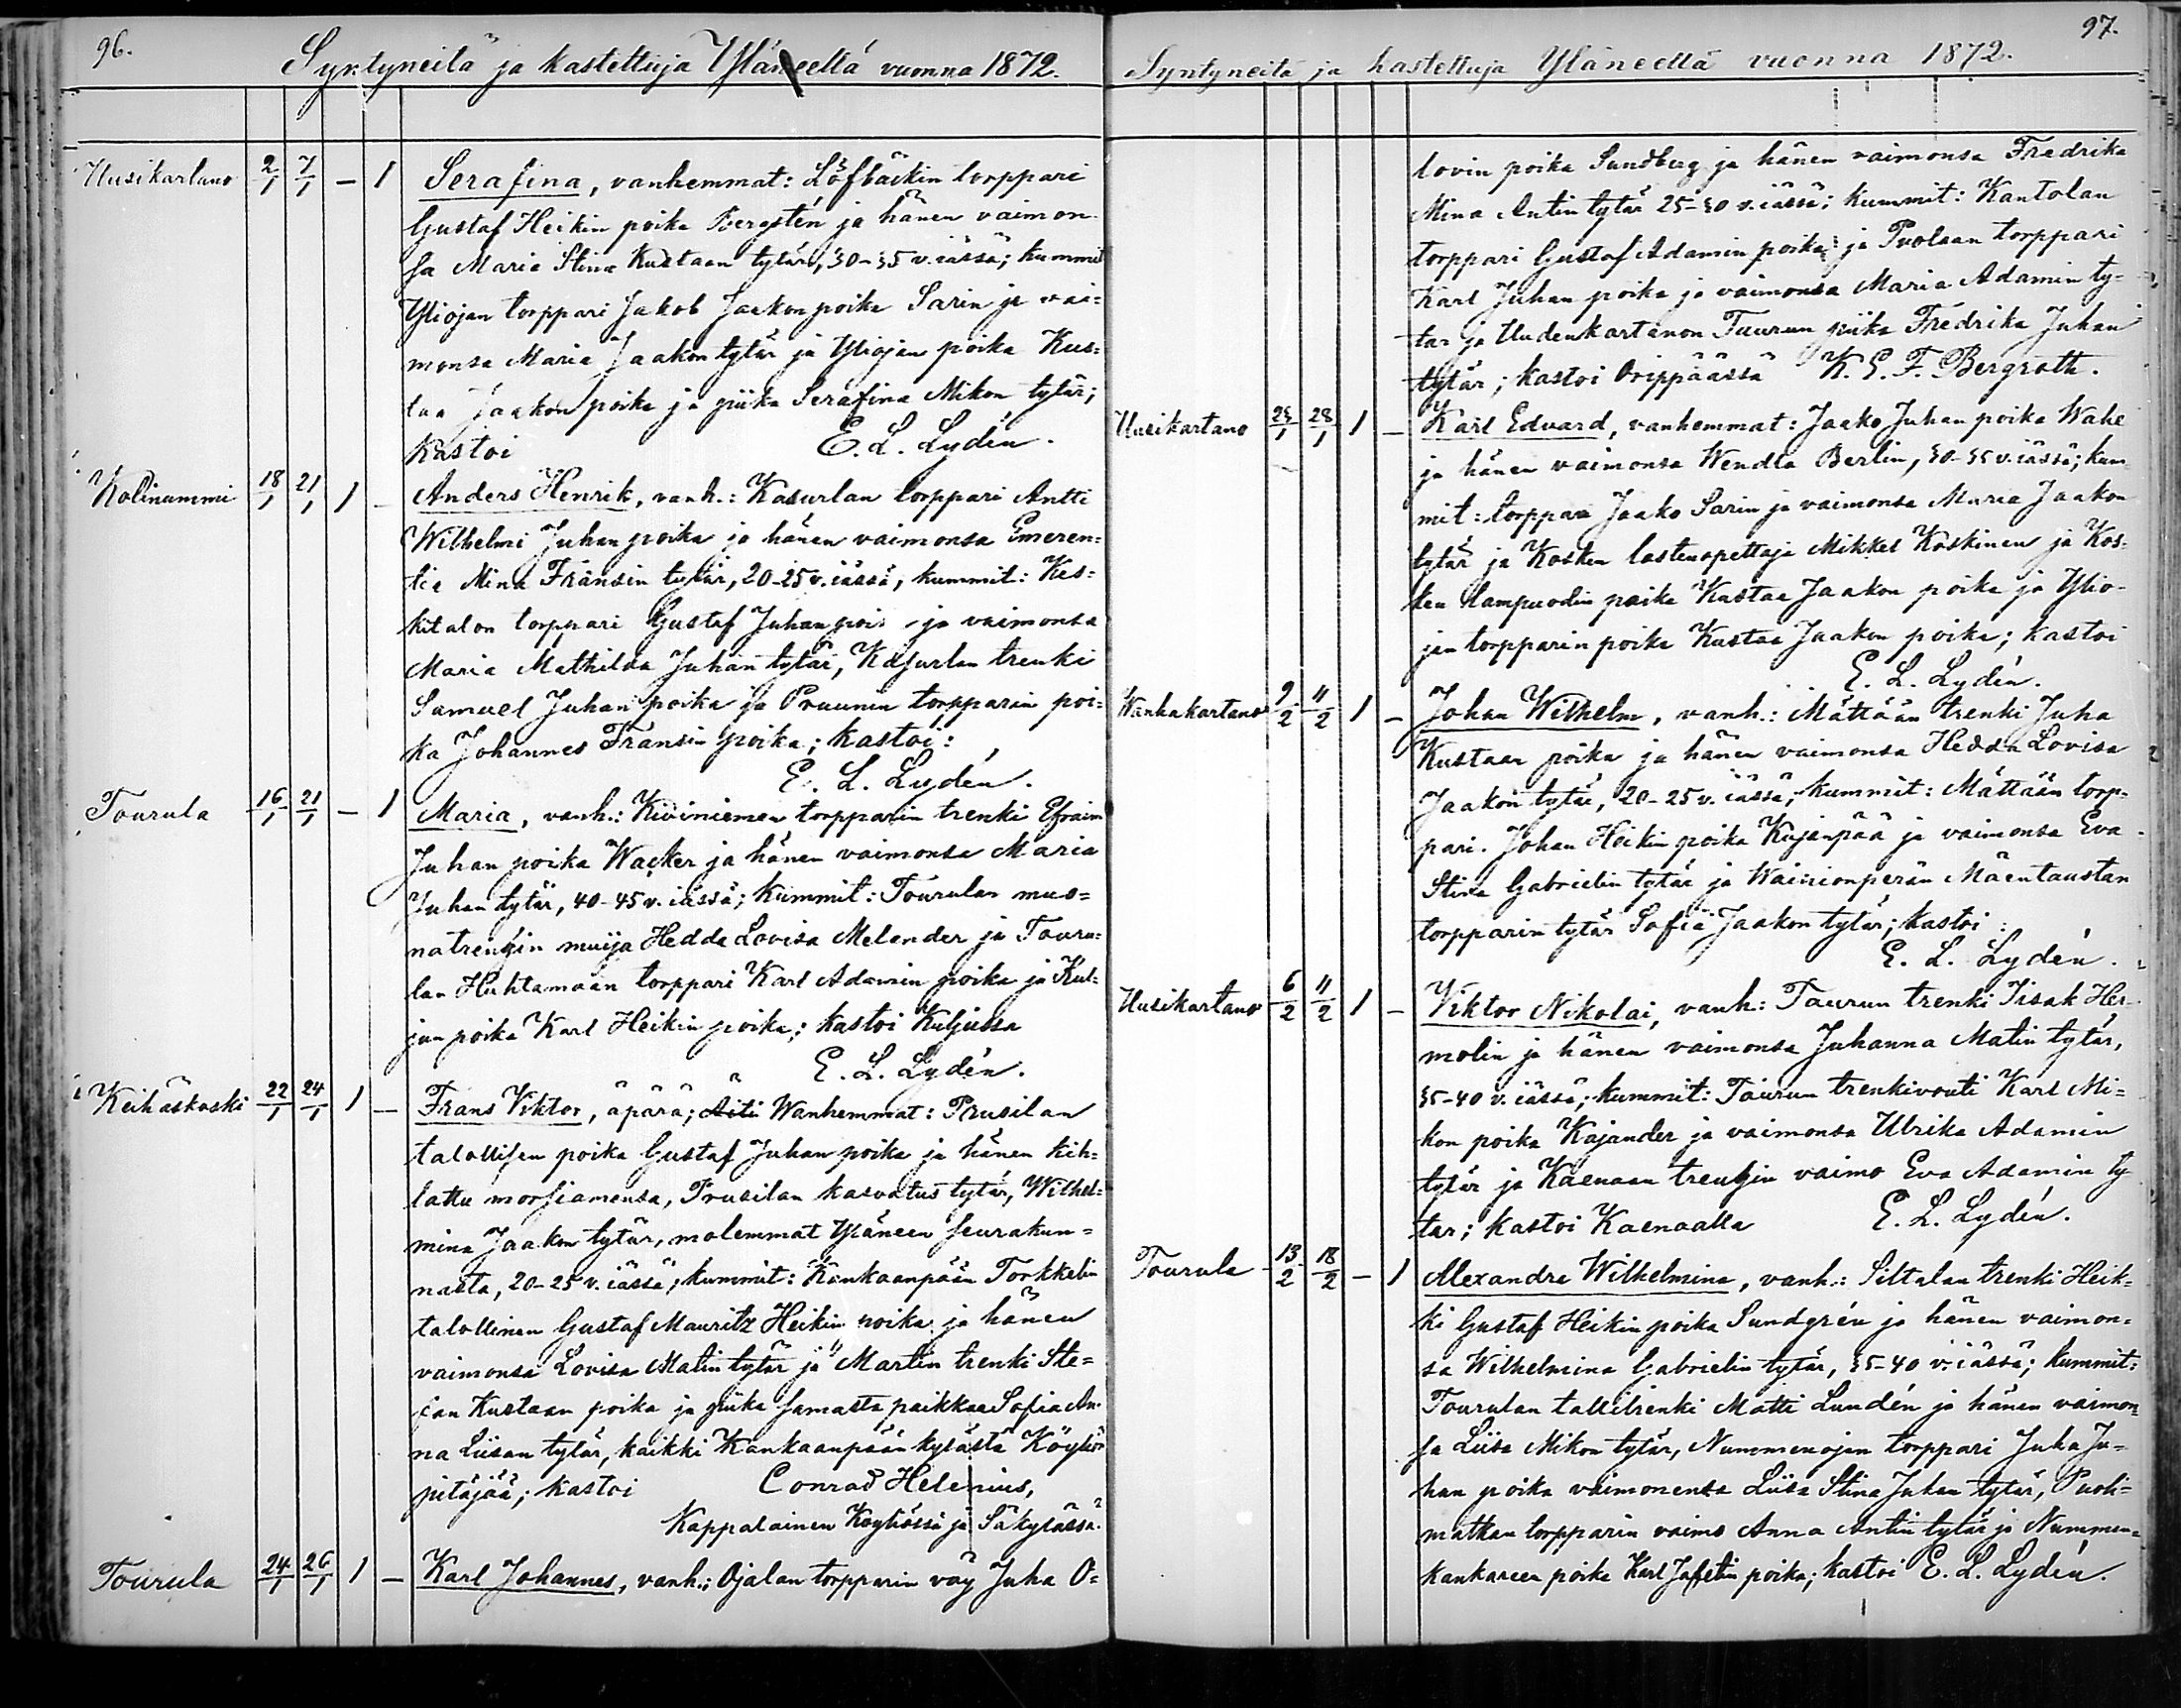 96.
Syntyneitä ja kastettuja Yläneellä vuonna 1872.
Uusikartano 2/1 7/1 — 1 Serafina, vanhemmat: Löfbäckin torppari
Gustaf Heikin poika Bergstén ja hänen vaimon-
sa Maria Stina Kustaan tytär, 30-35 v. iässä; kummit
Yliojan torppari Jakob Jaakon poika Sarin ja vai=
monsa Maria Jaakon tytär ja Yliojan poika Kus=
taa Jaakon poika ja piika Serafina Mikon tytär;
kastoi E. L. Lydén.
Kolinummi 18/1 21/1 1 — Anders Henrik, vanh.: Kasurlan torppari Antti
Wilhelmi Juhan poika ja hänen vaimonsa Emeren=
tia Mina Fransin tytär, 20-25 v. iässä, kummit: Kes=
kitalon torppari Gustaf Juhan poi ja vaimonsa
Maria Mathilda Juhan tytär, Kasurlan trenki
Samuel Juhan poika ja Pruunin torpparin poi=
ka Johannes Fransin poika; kastoi:
E. L. Lydén.
Tourula 16/1 21/1 — 1 Maria, vanh.: Kiviniemen torpparin trenki Efraim
Juhan poika Wacker ja hänen vaimonsa Maria
Juhan tytär, 40-45 v. iässä; kummit: Tourulan muo=
natrengin muija Hedda Lovisa Melander ja Touru=
lan Huhtamaan torppari Karl Adamin poika ja Kul=
jun poika Karl Heikin poika; kastoi Kuljussa
E. L. Lydén.
Keihäskoski 22/1 24/1 1 — Frans Viktor, äpärä; Äiti Wanhemmat: Prusilan
talollisen poika Gustaf Juhan poika ja hänen kih=
lattu morsiamensa, Prusilan kasvatus tytär, Wilhel=
mina Jaakon tytär, molemmat Yläneen seurakun=
nasta, 20-25 v. iässä; kummit: Kankaanpään Torkkelin
talollinen Gustaf Mauritz Heikin poika ja hänen
vaimonsa Lovisa Matin tytär ja Martin trenki Ste=
fan Kustaan poika ja piika samasta paikkaa Sofia An=
na Liisan tytär, kaikki Kankaanpään kylästä Köyliön
pitäjää; kastoi Conrad Helenius,
Kappalainen Köyliössä ja Säkylässä.
Tourula 24/1 26/1 1 — Karl Johannes, vanh.: Ojalan torpparin väy Juha O=
97.
Syntyneitä ja kastettuja Yläneellä vuonna 1872.
lovin poika Sundberg ja hänen vaimonsa Fredrika
Mina Antin tytär 25-30 v. iässä; kummit: Kantolan
torppari Gustaf Adamin poika ja Puolaan torppari
Karl Juhan poika ja vaimonsa Maria Adamin ty=
tar ja Uudenkartanon Tuurun piika Fredrika Juhan
tytär; kastoi Orippäässä K. E. F. Bergroth.
Uusikartano 25/1 28/1 1 — Karl Edvard, vanhemmat: Jaako Juhan poika Wahe
ja hänen vaimonsa Wendla Berlin, 30-35 v. iässä; kum
mit: torppari Jaako Sarin ja vaimonsa Maria Jaakon
tytär ja Kosken lastenopettaja Mikkel Koskinen ja Kos=
ken lampuodin poika Kustaa Jaakon poika ja Ylio-
jan torpparin poika Kustaa Jaakon poika; kastoi
E. L. Lydén.
Wanhakartano 9/2 11/2 1 — Johan Wilhelm, vanh.: Mättään trenki Juha
Kustaan poika ja hänen vaimonsa Hedda Lovisa
Jaakon tytär, 20-25 v. iässä, kummit: Mättään torp=
pari. Johan Heikin poika Kujanpää ja vaimonsa Eva
Stina Gabrielin tytär ja Wainionperän Mäentaustan
torpparin tytär Sofia Jaakon tytär; kastoi:
E. L. Lydén.
Uusikartano 6/2 11/2 1 — Viktor Nikolai, vanh: Taurun trenki Iisak Her=
molin ja hänen vaimonsa Juhanna Matin tytär,
35-40 v. iässä; kummit: Taurun trenkivouti Karl Mi=
kon poika Kajander ja vaimonsa Ulrika Adamin
tytär ja Kaenaan trengin vaimo Eva Adamin ty
tar; kastoi Kaenaalla E. L. Lydén.
Tourula 13/2 18/2 — 1 Alexandra Wilhelmina, vanh.: Siltalan trenki Heik=
ki Gustaf Heikin poika Sundgrén ja hänen vaimon=
sa Wilhelmina Gabrielin tytär, 35-40 v. iässä; kummit:
Tourulan tallitrenki Matti Lundén ja hänen vaimon=
sa Liisa Mikon tytär, Nummenojan torppari Juha Ju=
han poika vaimonensa Liisa Stina Juhan tytär, Puoli=
matkan torpparin vaimo Anna Antin tytär ja Nummen=
kankareen poika Karl Jafetin poika; kastoi E. L. Lydén.